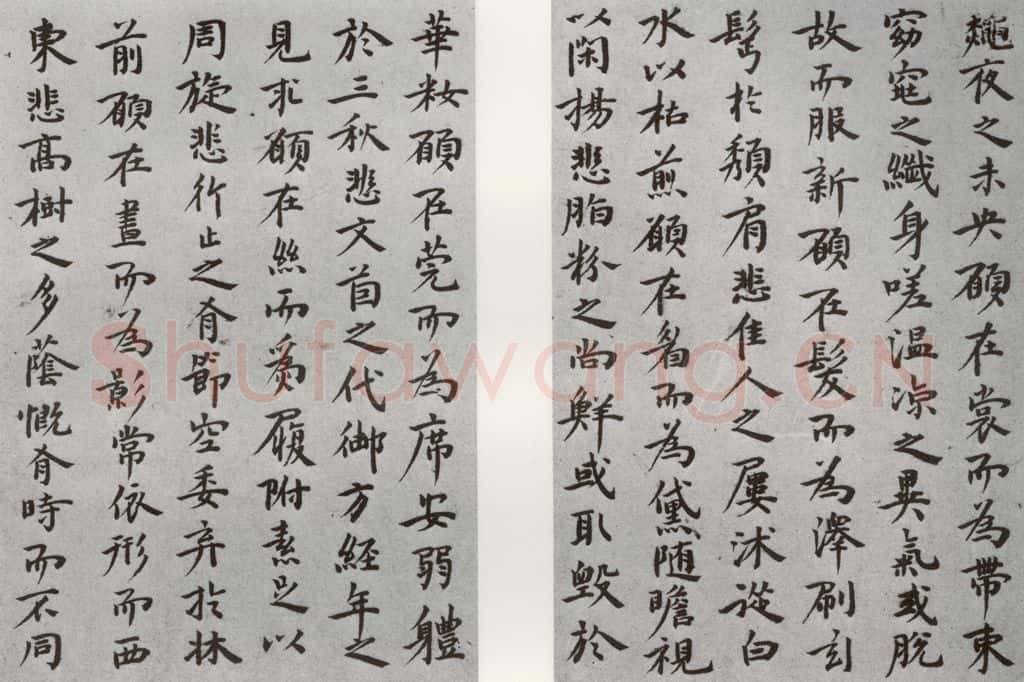 龝夜之未央願在裳而為帶束
窈窕之纖身嗟温涼之異氣或脫
故而服新願在髮而為澤刷玄
髩於頹肩悲佳人之屢沐從白
水以枯煎願在眉而為黛随瞻視
以閑揚悲脂粉之尚鮮或取毀於
華妝願在莞而為席安弱體
於三秋悲文茵之代御方經年之
見求願在絲而為履附素足以
周旋悲行止之有節空委弃於牀
前願在晝而為影常依形而西
東悲高樹之多蔭慨有時而不同
Shufawang.CN